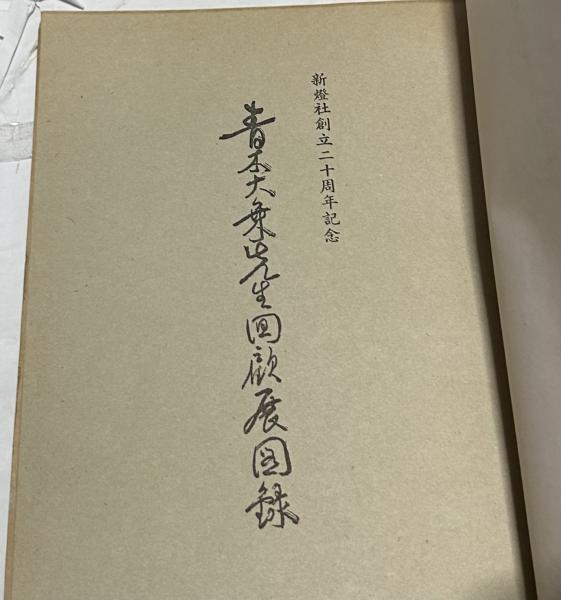 新燈社創立二十周年記念
青木大乗先生回顧展図録